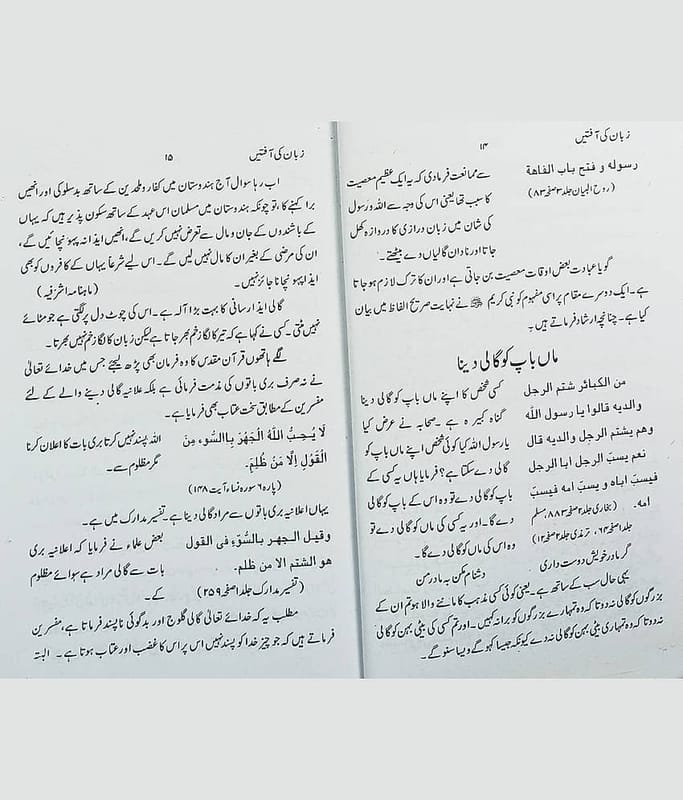 زبان کی آفتیں ۱۴
رسوله و فتح باب الفاهة
(روح البیان جلد ۳ صفحہ ۸۳)
سے ممانعت فرمادی کہ یہ ایک عظیم معصیت
کا سبب تھا یعنی اس کی وجہ سے اللہ و رسول
کی شان میں زبان درازی کا دروازہ کھل
جاتا اور نادان گالیاں دے بیٹھتے۔
گویا عبادت بعض اوقات معصیت بن جاتی ہے اور ان کا ترک لازم ہو جاتا
ہے۔ ایک دوسرے مقام پر اسی مفہوم کو نبی کریم ﷺ نے نہایت صریح الفاظ میں بیان
کیا ہے۔ چنانچہ ارشاد فرماتے ہیں۔
ماں باپ کو گالی دینا
من الکبائر شتم الرجل
والدیه قالوا یا رسول اللّٰه
وهم یشتم الرجل والدیه قال
نعم یسبّ الرجل ابا الرجل
فیسبّ اباه و یسبّ امه فیسبّ
امه۔ (بخاری جلد ۲ صفحہ ۸۸۳ مسلم
جلد ۱ صفحہ ۶۴، ترمذی جلد ۲ صفحہ ۱۲)
کسی شخص کا اپنے ماں باپ کو گالی دینا
گناہ کبیرہ ہے۔ صحابہ نے عرض کیا
یا رسول اللہ کیا کوئی شخص اپنے ماں باپ کو
گالی دے سکتا ہے؟ فرمایا ہاں یہ کسی کے
باپ کو گالی دے تو وہ اس کے باپ کو گالی
دے گا۔ اور یہ کسی کی ماں کو گالی دے تو
وہ اس کی ماں کو گالی دے گا۔
گر مادر خویش دوست داری دشنام مکن بہ مادر من
یہی حال سب کے ساتھ ہے۔ یعنی کوئی کسی مذہب کا ماننے والا ہو تم ان کے
بزرگوں کو گالی نہ دو تا کہ وہ تمہارے بزرگوں کو برا نہ کہیں۔ اور تم کسی کی بیٹی بہن کو گالی
نہ دو تا کہ وہ تمہاری بیٹی بہن کو گالی نہ دے کیونکہ جیسا کہو گے ویسا سنو گے۔
زبان کی آفتیں ۱۵
اب رہا سوال آج ہندوستان میں کفار و ملحدین کے ساتھ بدسلوکی اور انھیں
برا کہنے کا، تو چونکہ ہندوستان میں مسلمان اس عہد کے ساتھ سکون پذیر ہیں کہ یہاں
کے باشندوں کے جان و مال سے تعرض نہیں کریں گے، انھیں ایذا نہ پہونچائیں گے،
ان کی مرضی کے بغیر ان کا مال نہیں لیں گے۔ اس لیے شرعاً یہاں کے کافروں کو بھی
ایذا پہونچانا جائز نہیں۔ (ماہنامہ اشرفیہ)
گالی ایذا رسانی کا بہت بڑا آلہ ہے۔ اس کی چوٹ دل پر لگتی ہے جو مٹائے
نہیں مٹتی۔ کسی نے کہا ہے کہ تیر کا لگا زخم بھر جاتا ہے لیکن زبان کا لگا زخم نہیں بھرتا۔
لگے ہاتھوں قرآن مقدس کا وہ فرمان بھی پڑھ لیجئے جس میں خدائے تعالیٰ
نے نہ صرف بری باتوں کی مذمت فرمائی ہے بلکہ علانیہ گالی دینے والے کے لئے
مفسرین کے مطابق سخت عتاب بھی فرمایا ہے۔
لَا یُحِبُّ اللّٰهُ الْجَهْرَ بِاالسُّوء مِنَ
الْقَوْلِ اِلَّا مَنْ ظُلِمَ۔
(پارہ ۶ سورہ نساء، آیت ۱۴۸)
اللہ پسند نہیں کرتا بری بات کا اعلان کرنا
مگر مظلوم سے۔
یہاں اعلانیہ بری باتوں سے مراد گالی دینا ہے۔ تفسیر مدارک میں ہے۔
وقیل الجهر بالسُّوٓءِ فی القول
هو الشتم الا من ظلم۔
(تفسیر مدارک جلد ا صفحہ ۲۵۹)
بعض علماء نے فرمایا کہ اعلانیہ بری
بات سے گالی مراد ہے سوائے مظلوم
کے۔
مطلب یہ کہ خدائے تعالیٰ گالی گلوج اور بدگوئی ناپسند فرماتا ہے، مفسرین
فرماتے ہیں کہ جو چیز خدا کو پسند نہیں اس پر اس کا غضب اور عتاب ہوتا ہے۔ البتہ